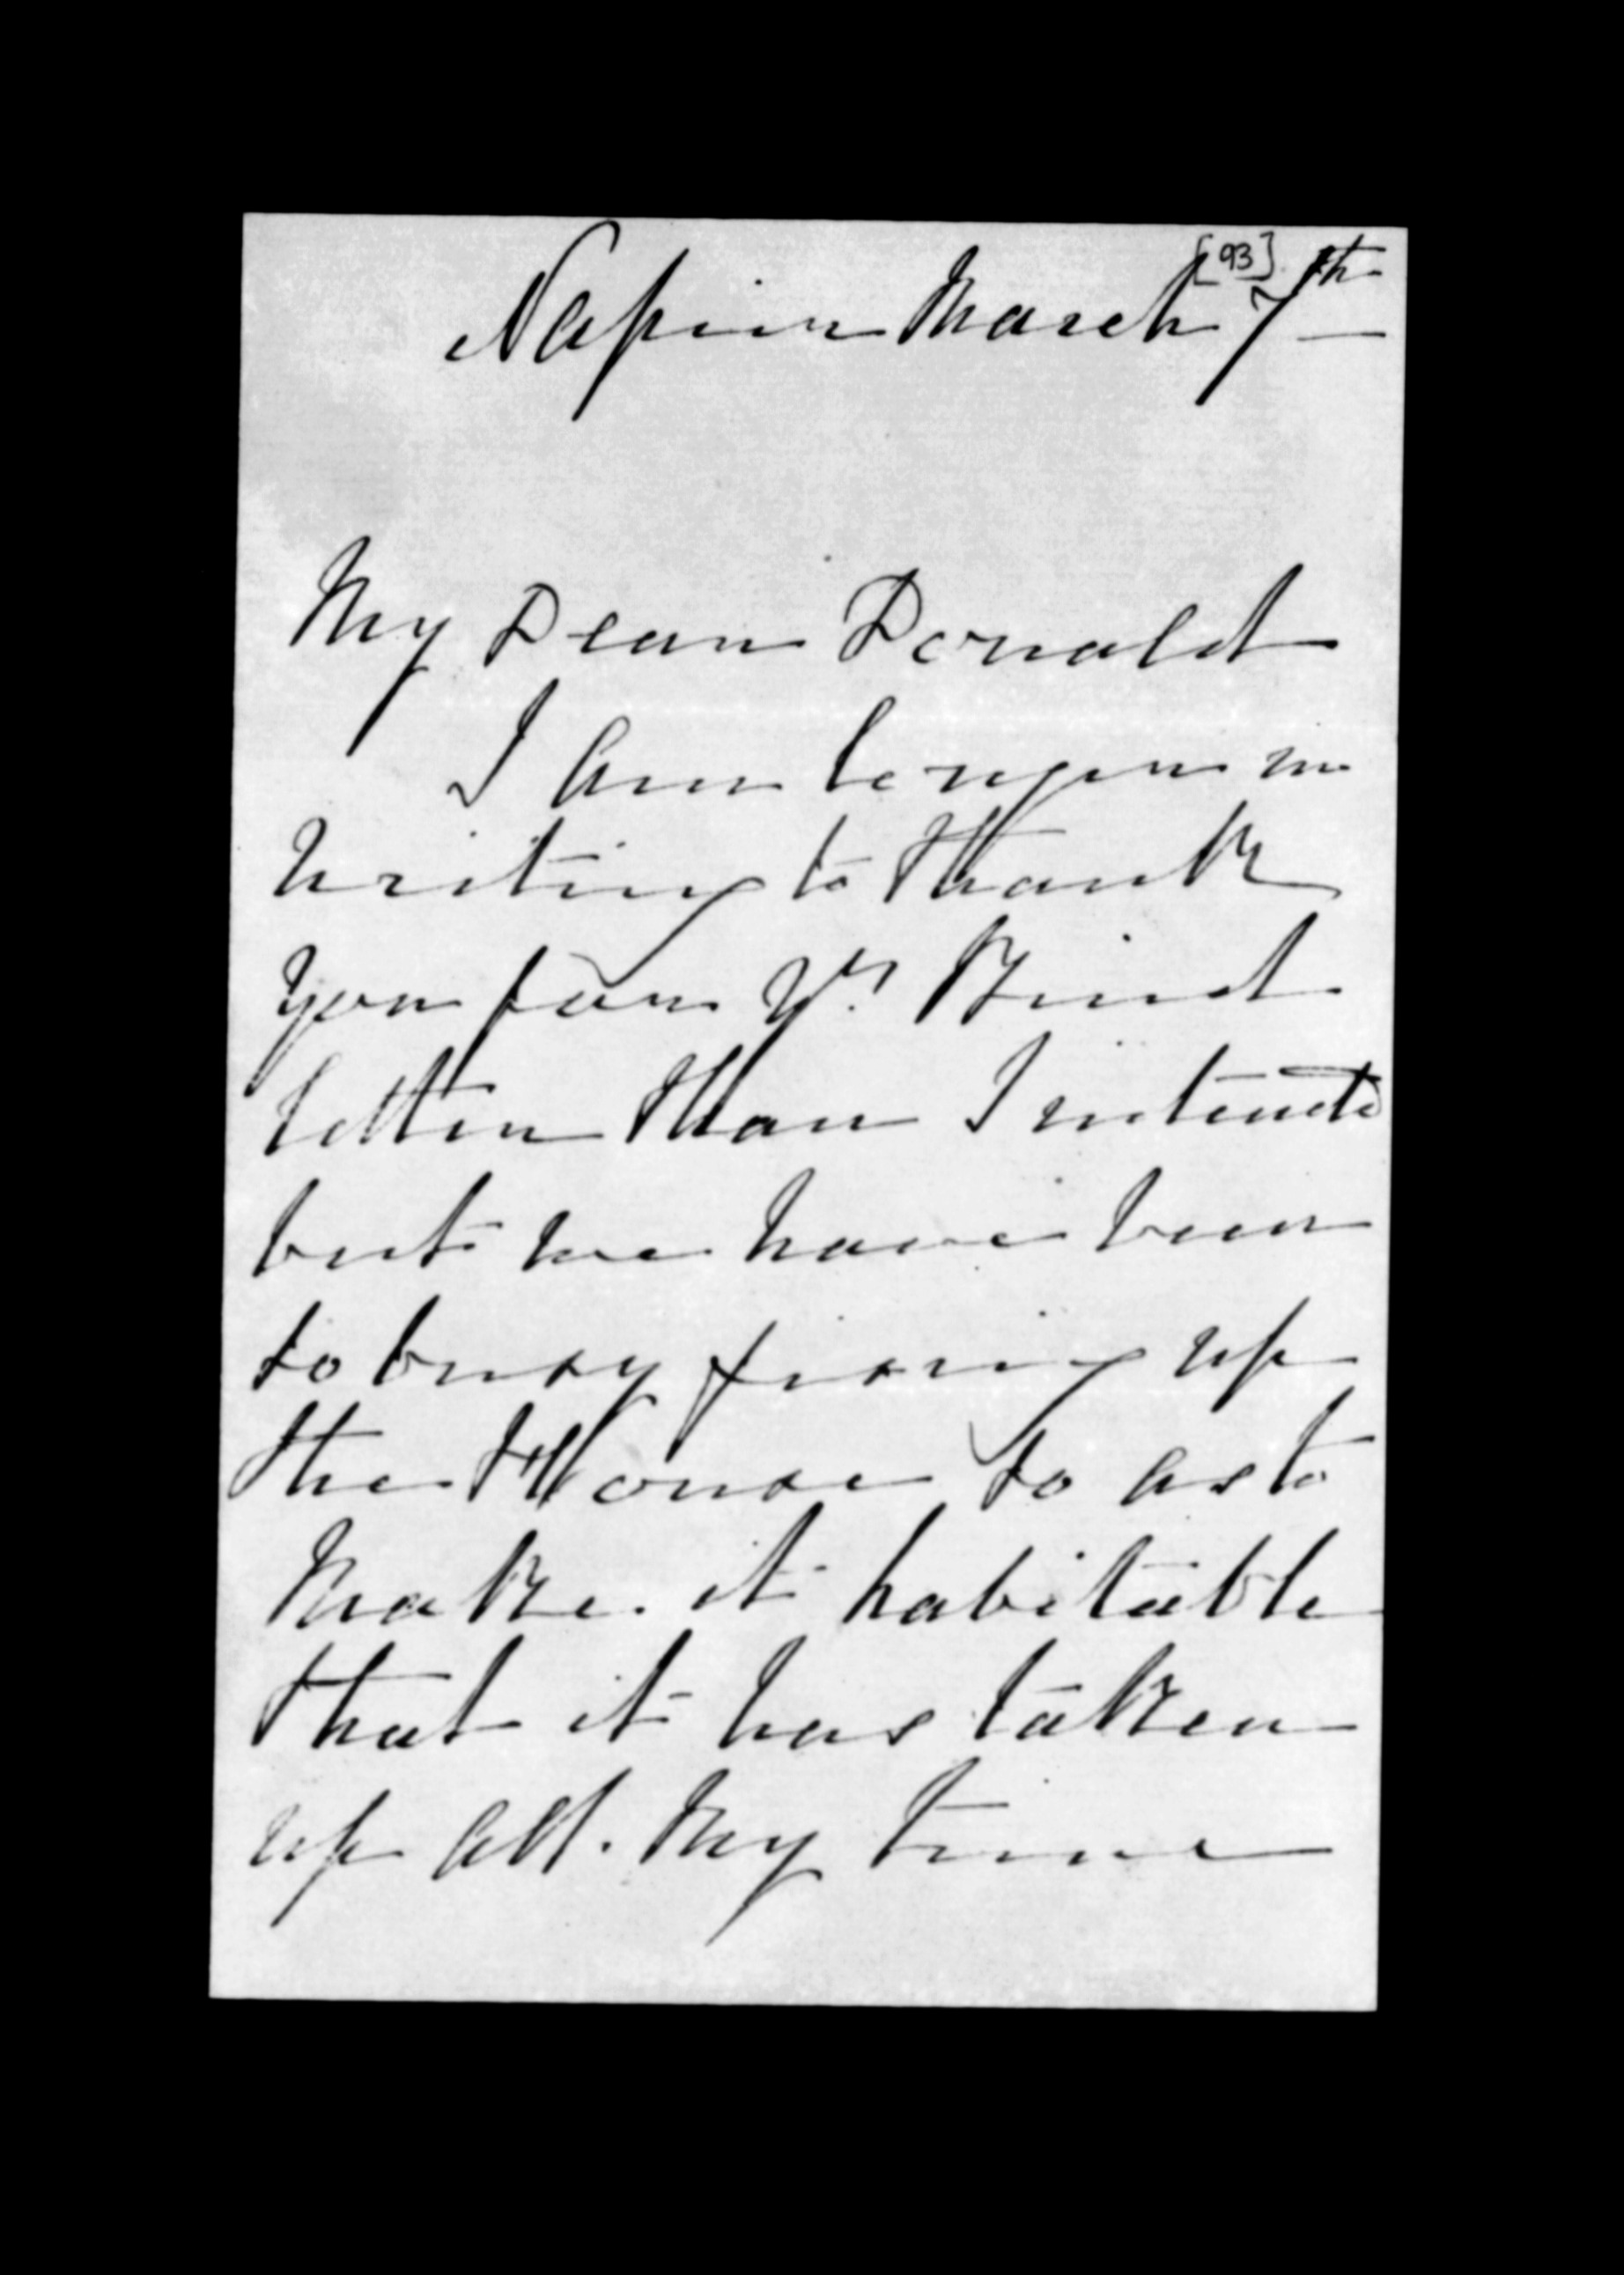 [93]
Napier March 7th
My Dear Donald
I am longer in
writing to thank
you for yr. kind
letter than I intended
but we have been
so busy fixing up
the House so as to
make. it habitable
that it has taken
up all. my time